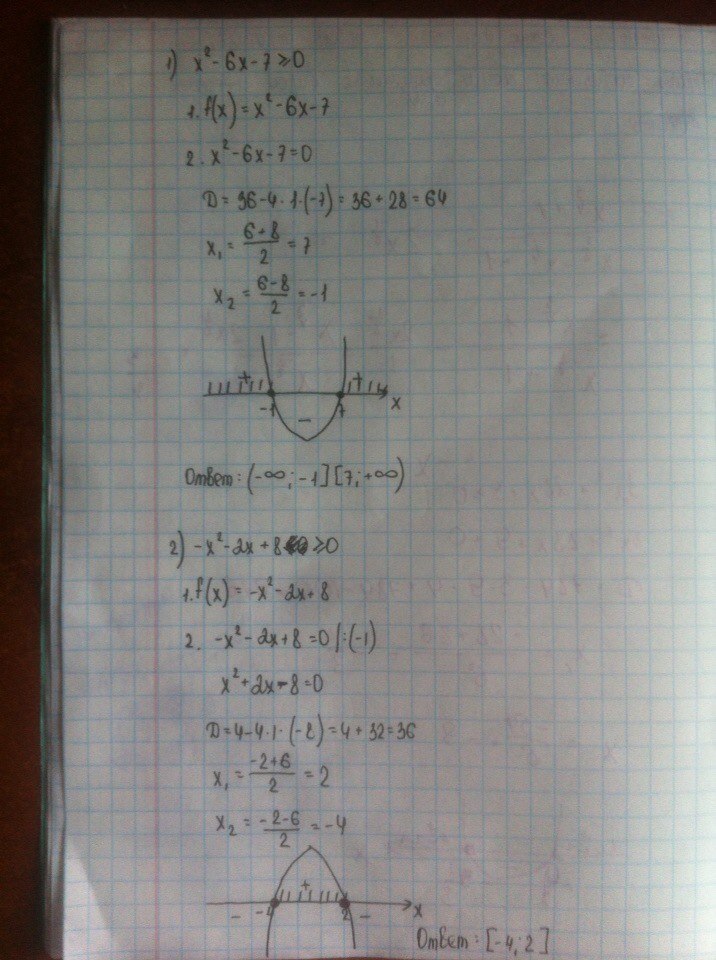 1) x² - 6x - 7 ≥ 0
1. f(x) = x² - 6x - 7
2. x² - 6x - 7 = 0
D = 36 - 4 · 1 · (-7) = 36 + 28 = 64
x₁ = (6+8)/2 = 7
x₂ = (6-8)/2 = -1
+ +
-1 – 7 x
Ответ: (-∞; -1] [7; +∞)
2) -x² - 2x + 8 ≥ 0
1. f(x) = -x² - 2x + 8
2. -x² - 2x + 8 = 0 |:(-1)
x² + 2x - 8 = 0
D = 4 - 4 · 1 · (-8) = 4 + 32 = 36
x₁ = (-2+6)/2 = 2
x₂ = (-2-6)/2 = -4
+
– -4 2 – x
Ответ: [-4; 2]